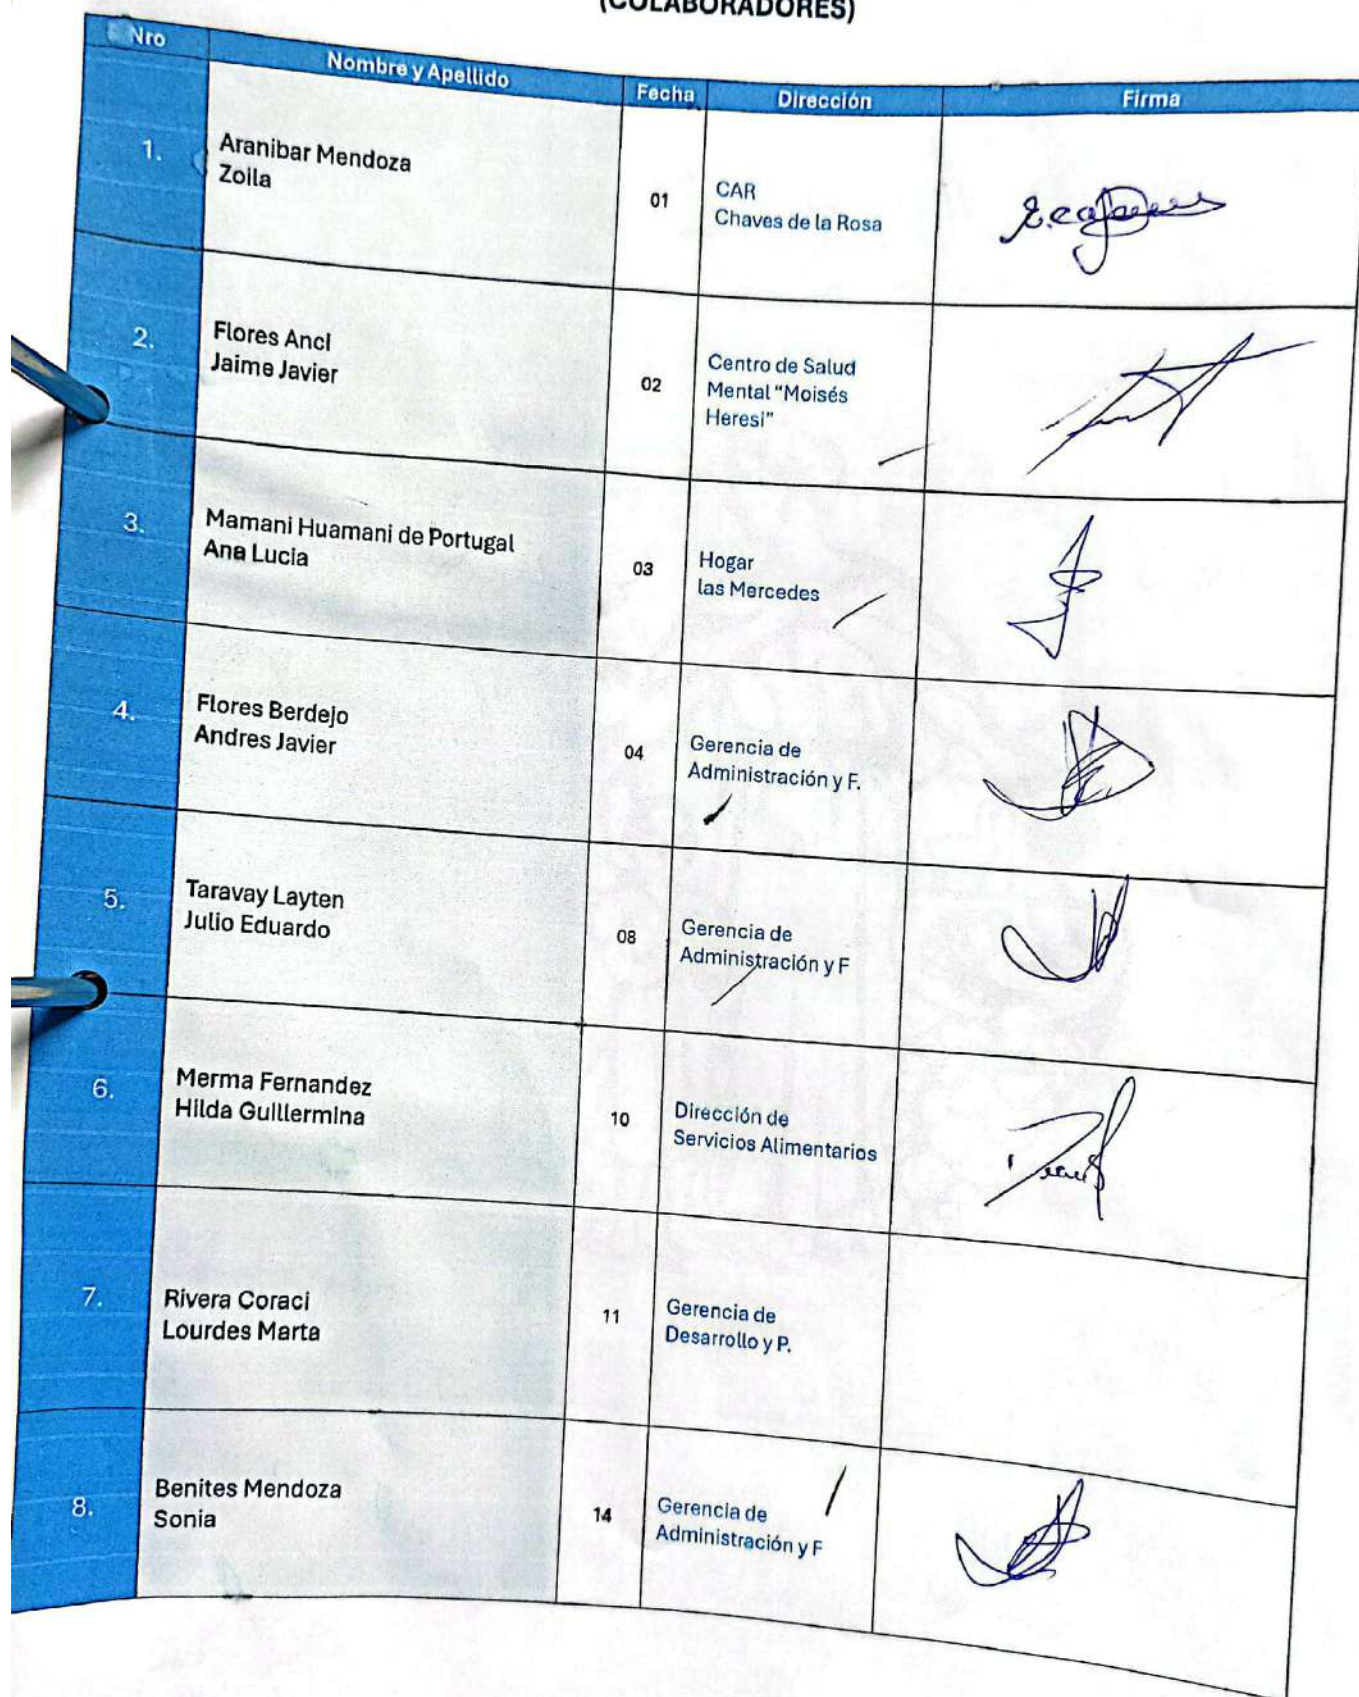 (COLABORADORES)
Nro Nombre y Apellido Fecha Dirección Firma
1.
Aranibar Mendoza
Zoila
01
CAR
Chaves de la Rosa
2.
Flores Anci
Jaime Javier
02
Centro de Salud
Mental “Moisés
Heresi”
3.
Mamani Huamani de Portugal
Ana Lucia
03
Hogar
las Mercedes
4.
Flores Berdejo
Andres Javier
04
Gerencia de
Administración y F.
5.
Taravay Layten
Julio Eduardo
08
Gerencia de
Administración y F
6.
Merma Fernandez
Hilda Guillermina
10
Dirección de
Servicios Alimentarios
7.
Rivera Coraci
Lourdes Marta
11
Gerencia de
Desarrollo y P.
8.
Benites Mendoza
Sonia
14
Gerencia de
Administración y F